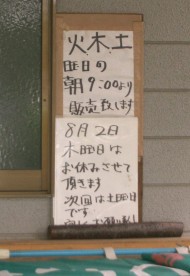 火木土
曜日の
朝9:00より
販売致します
8月2日
木曜日は
お休みさせて
頂きます
次回は土曜日
です